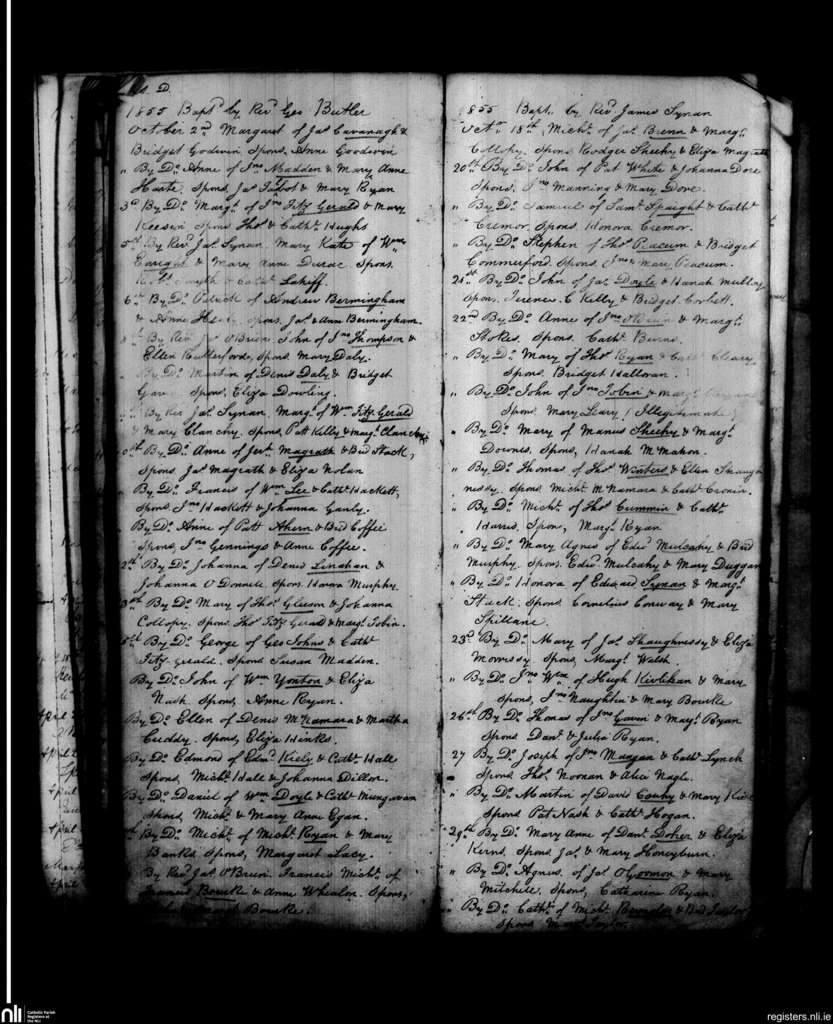 A. D.
1855 Baptd by Revd Geo Butler
October 2nd Margaret of Jas Cavanagh &
Bridget Godwin Spons, Anne Goodwin
" By Do Anne of Jno Madden & Mary Anne
Harte. Spons, Jas Talbot & Mary Ryan
3d By Do Margt of Jno Fitz Gerald & Mary
Keesin Spons Thos & Cathe Hughs
5th By Revd Jas Synan. Mary Kate of Wm
Enright & Mary Anne Spons.
Smyth & Lahiff.
6th By Do Patrick of Andrew Bermingham
& Anne Spons, Jas & Anne Bermingham.
By Rev Jas O'Brien John of Jno Thompson &
Ellen Rutherford, Spons, Mary Daly.
By Do Martin of Denis Daly & Bridget
Spons, Eliza Dowling.
" By Rev Jas Synan. Margt of Wm Fitz Gerald
& Mary Clanchy. Spons, Patt Kelly & Margt Clanchy
By Do Anne of Magrath & Bid Stack,
Spons Jas Magrath & Eliza Nolan
By Do Francis of Wm Lee & Cathe Hackett,
Spons, Jno Hackett & Johanna Ganly.
By Do Anne of Patt Ahern & Bid Coffee
Spons, Jno Gennings & Anne Coffee.
By Do Johanna of Denis Linahan &
Johanna O Donnell Spons. Honora Murphy.
By Do Mary of Thos Gleeson & Johanna
Collopy. Spons. Thos Fitz Gerald & Margt Tobin.
By Do George of Geo Johns & Cathe
Fitz-gerald. Spons Susan Madden.
By Do John of Wm Yonton & Eliza
Nash Spons, Anne Ryan.
By Do Ellen of Denis McNamara & Martha
Cuddy. Spons, Eliza Hinks.
By Do Edmond of Edmd Kiely & Cathe Hall
Spons, Michl Hall & Johanna Dillon.
By Do Daniel of Wm Doyle & Cathe Mungavan
Spons, Michl & Mary Anne Egan.
By Do Michl of Michl Ryan & Mary
Banks Spons, Margaret Lacy.
By Rev Jas O'Brien Francis Michl of
Francis Bourke & Anne Whealon. Spons,
Bourke.
1855 Bapt. by Revd James Synan
Octr 18th, Michl of Jas Brenn & Margt
Collopy. Spons Rodger Sheehy & Eliza Magrath
20th By Do John of Pat White & Johanna Dore
Spons. Jno Manning & Mary Dore.
" By Do Samuel of Saml Speight & Cathe
Cremor. Spons. Honora Cremor.
" By Do Stephen of Thos Peacum & Bridget
Commerford. Spons. Jno & Mary Peacum.
21st By Do John of Jas Doyle & Hanah Mullay
Spons. Terence C Kelly & Bridget Corbett.
22nd By Do Anne of Jno O'Brien & Margt
Stokes. Spons. Cathe Burns.
" By Do Mary of Thos Ryan & Cathe Cleary
Spons. Bridget Halloran.
" By Do John of Jno Tobin & Margt
Spons. Mary Leary / Illegitimate
" By Do Mary of Manus Sheehy & Margt
Downes. Spons, Hanah McMahon.
" By Do Thomas of Thos Winters & Ellen Shaugh
nessy. Spons. Michl McNamara & Cathe Cronin.
" By Do Michl of Thos Cummin & Cathe
Harris. Spons, Margt Ryan
" By Do Mary Agnes of Edwd Mulcahy & Bid
Murphy. Spons. Edwd Mulcahy & Mary Duggan
" By Do Honora of Edward Synan & Margt
Stack. Spons Cornelius Conway & Mary
Spillane.
23d By Do Mary of Jas Shaughnessy & Eliza
Morrissy Spons, Margt Walsh.
" By Do Jno Wm of Hugh Kivlehan & Mary
Spons, Jno Naughtin & Mary Bourke
26th By Do Thomas of Jno Gavin & Margt Ryan
Spons Danl & Julia Ryan.
27 By Do Joseph of Jno Meagan & Cathe Lynch
Spons Thos Noonan & Alice Nagle.
" By Do Martin of David Conny & Mary
Spons Pat Nash & Cathe Hogan.
29th By Do Mary Anne of Danl Doher & Eliza
Kerns Spons Jas & Mary Honeyburn.
" By Do Agnes of Jas O'Gorman & Mary
Mitchell, Spons, Catharine Ryan.
" By Do Cathe of Michl & Bid Taylor
Spons Taylor
April
April
April
April
nli
Catholic Parish
Registers at
the NLI
registers.nli.ie